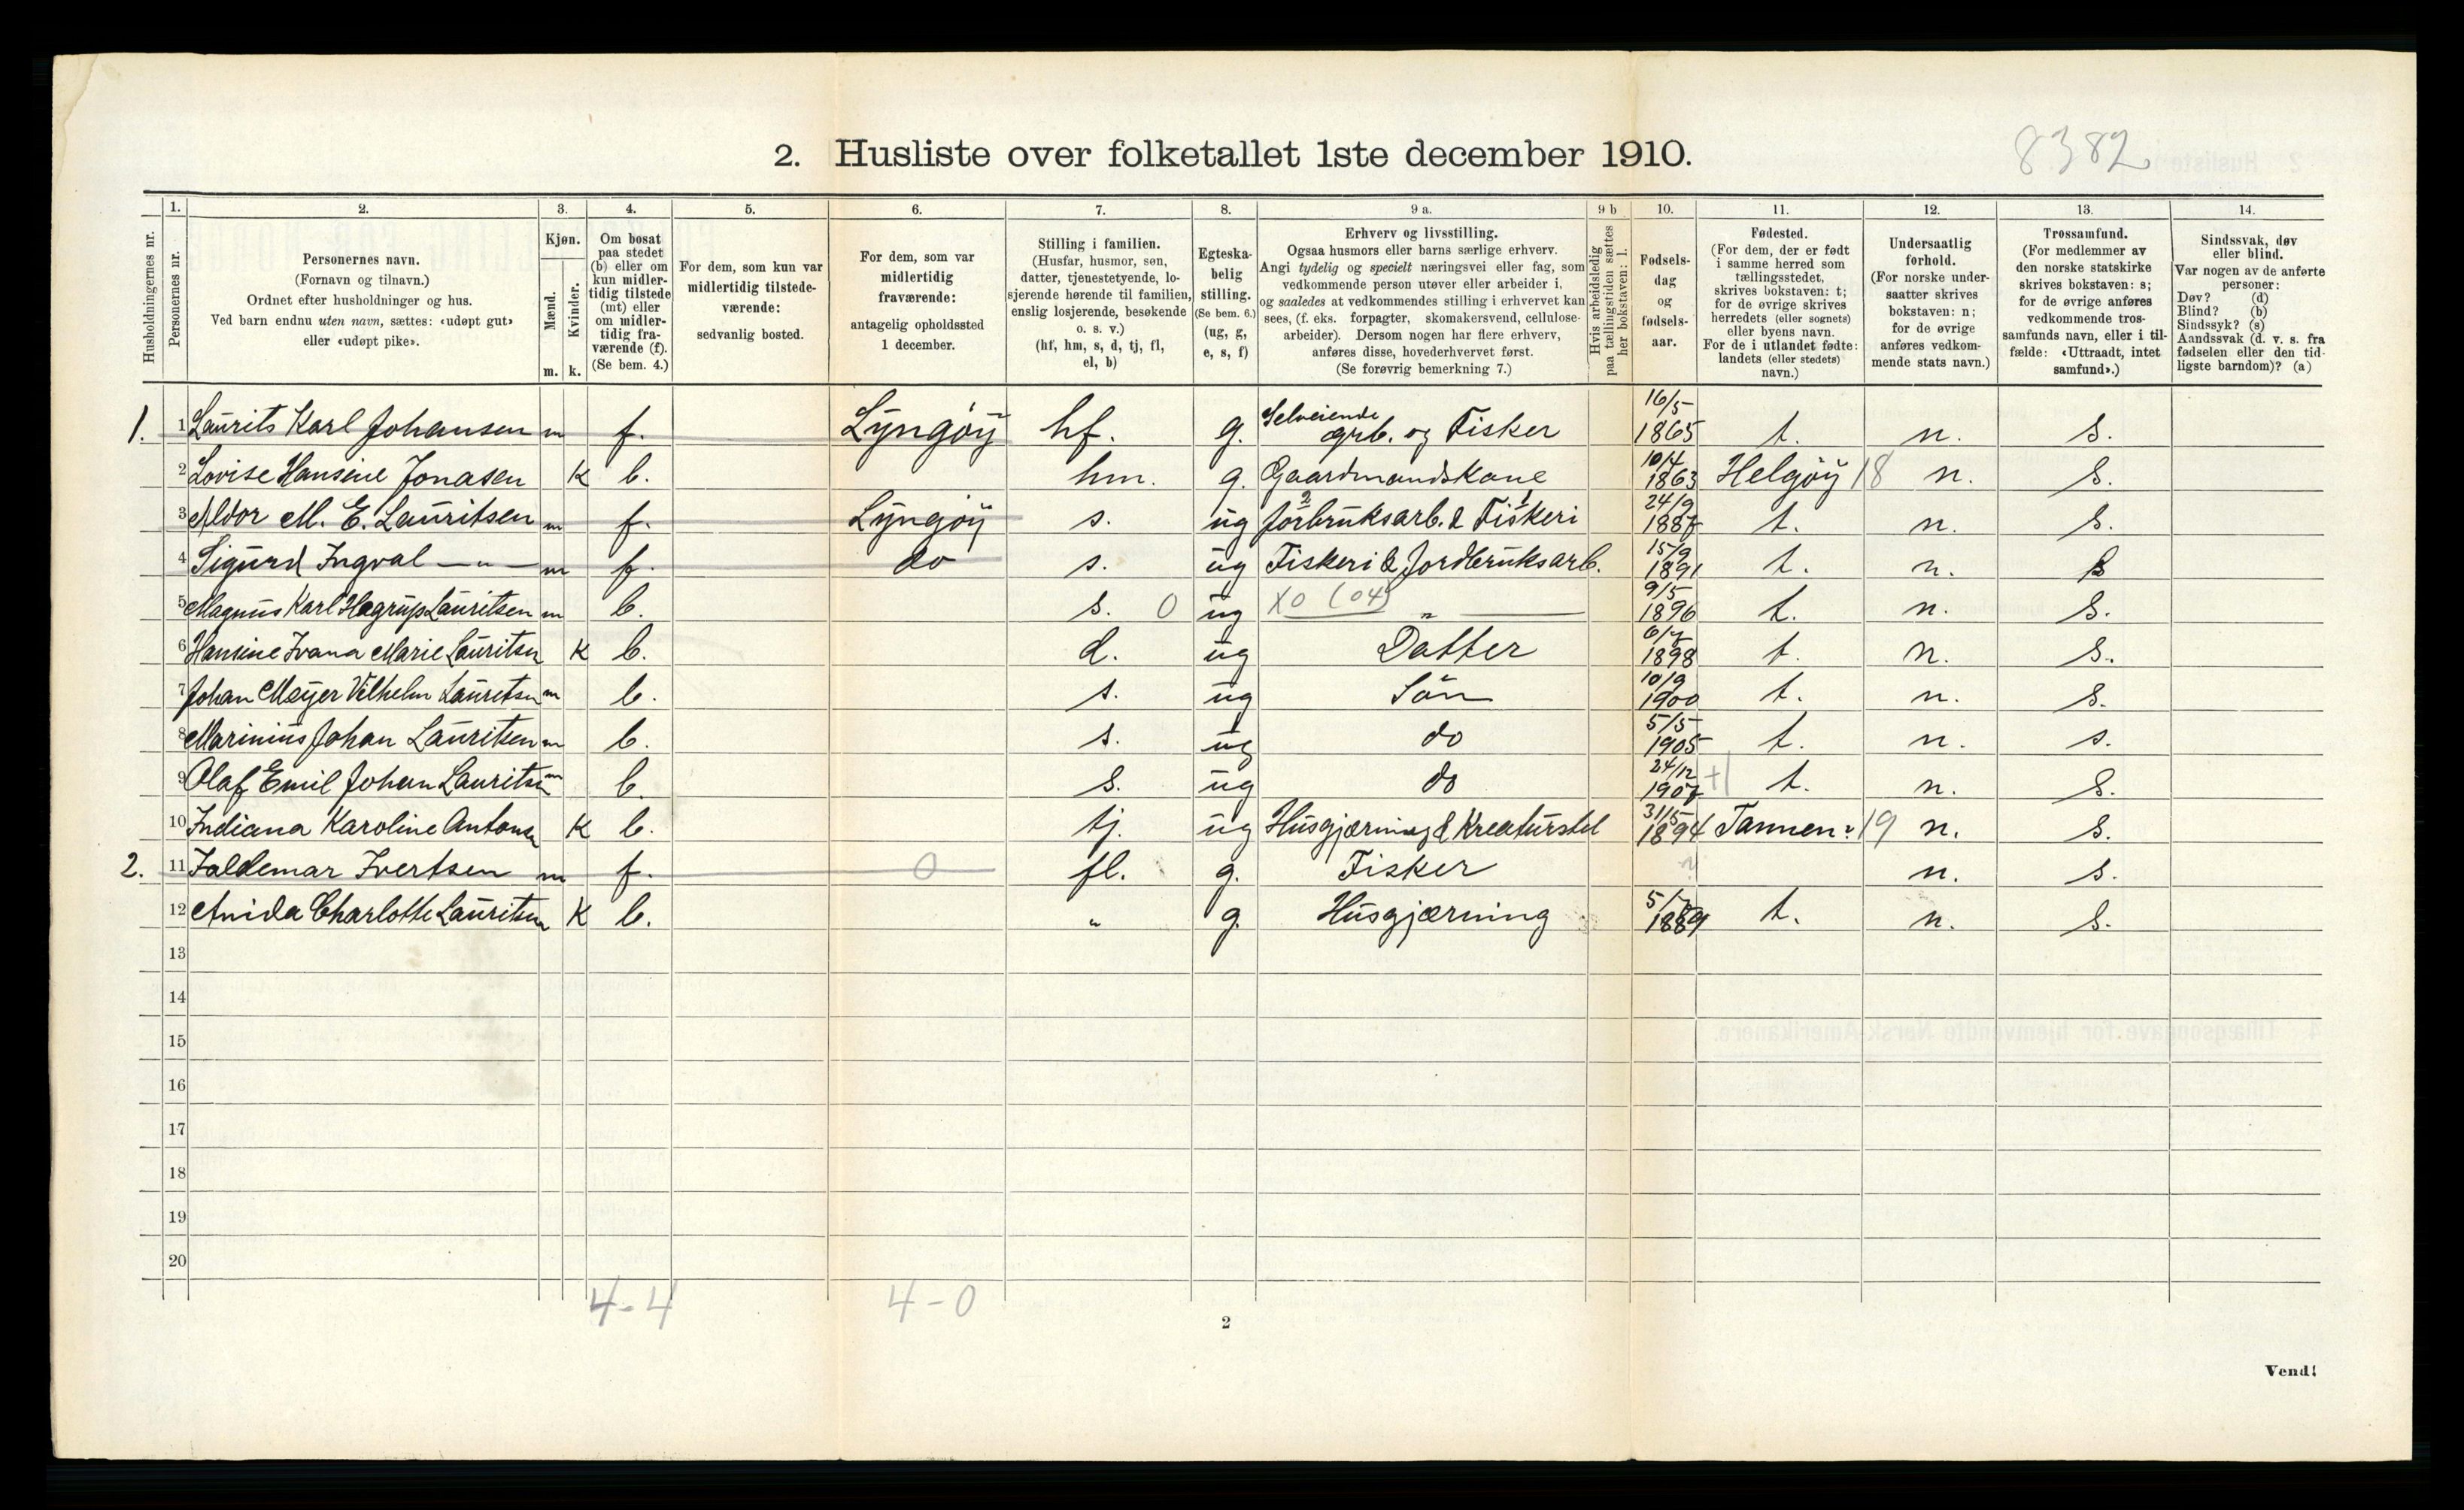 8382
2. Husliste over folketallet 1ste december 1910.
Husholdningernes nr.
1. Personernes nr.
2. Personernes navn.
(Fornavn og tilnavn.)
Ordnet efter husholdninger og hus.
Ved barn endnu uten navn, sættes: «udøpt gut»
eller «udøpt pike».
3. Kjøn.
Mænd. m.
Kvinder. k.
4. Om bosat
paa stedet
(b) eller om
kun midler-
tidig tilstede
(mt) eller
om midler-
tidig fra-
værende (f).
(Se bem. 4.)
5. For dem, som kun var
midlertidig tilstede-
værende:
sedvanlig bosted.
6. For dem, som var
midlertidig
fraværende:
antagelig opholdssted
1 december.
7. Stilling i familien.
(Husfar, husmor, søn,
datter, tjenestetyende, lo-
sjerende hørende til familien,
enslig losjerende, besøkende
o. s. v.)
(hf, hm, s, d, tj, fl,
el, b)
8. Egteska-
belig
stilling.
(Se bem. 6.)
(ug, g,
e, s, f)
9 a. Erhverv og livsstilling.
Ogsaa husmors eller barns særlige erhverv.
Angi tydelig og specielt næringsvei eller fag, som
vedkommende person utøver eller arbeider i,
og saaledes at vedkommendes stilling i erhvervet kan
sees, (f. eks. forpagter, skomakersvend, cellulose-
arbeider). Dersom nogen har flere erhverv,
anføres disse, hovederhvervet først.
(Se forøvrig bemerkning 7.)
9 b Hvis arbeidsledig
paa tællingstiden sættes
her bokstaven: l.
10. Fødsels-
dag
og
fødsels-
aar.
11. Fødested.
(For dem, der er født
i samme herred som
tællingsstedet,
skrives bokstaven: t;
for de øvrige skrives
herredets (eller sognets)
eller byens navn.
For de i utlandet fødte:
landets (eller stedets)
navn.)
12. Undersaatlig
forhold.
(For norske under-
saatter skrives
bokstaven: n;
for de øvrige
anføres vedkom-
mende stats navn.)
13. Trossamfund.
(For medlemmer av
den norske statskirke
skrives bokstaven: s;
for de øvrige anføres
vedkommende tros-
samfunds navn, eller i til-
fælde: «Uttraadt, intet
samfund».)
14. Sindssvak, døv
eller blind.
Var nogen av de anførte
personer:
Døv? (d)
Blind? (b)
Sindssyk? (s)
Aandssvak (d. v. s. fra
fødselen eller den tid-
ligste barndom)? (a)
1. 1 Laurits Karl Johansen m f. Lyngöy hf. g. Selveiende grb. og Fisker 16/5 1865 t. n. s.
2 Lovise Hansine Jonasen K b. hm. g. Gaardmandskone 10/4 1863 Helgöy 18 n. s.
3 Aldor M. E. Lauritsen m f. Lyngöy s. ug 2 jorbruksarb. & 1 Fiskeri 24/9 1887 t. n. s.
4 Sigurd Ingval —"— m f. do s. ug Fiskeri & Jordbruksarb. 15/9 1891 t. n. s
5 Magnus Karl Hagrup Lauritsen m b. s. 0 ug X0 (04) " 9/5 1896 t. n. s.
6 Hansine Ivana Marie Lauritsen K b. d. ug Datter 6/7 1898 t. n. s.
7 Johan Meyer Vilhelm Lauritsen m b. s. ug Sön 10/9 1900 t. n. s.
8 Marinius Johan Lauritsen m b. s. ug do 5/5 1905 t. n. s.
9 Olaf Emil Johan Lauritsen m b. s. ug do 24/12 1907 +1 t. n. s.
10 Indiana Karoline Antons K b. tj. ug Husgjærning & Kreaturstel 31/5 1894 19 n. s.
2. 11 Ivertsen m f. 0 fl. g. Fisker ? n. s.
12 Charlotte Lauritsen K b. " g. Husgjærning 1889 t. n. s.
13
14
15
16
17
18
19
20
4-4 4-0
2
Vend!